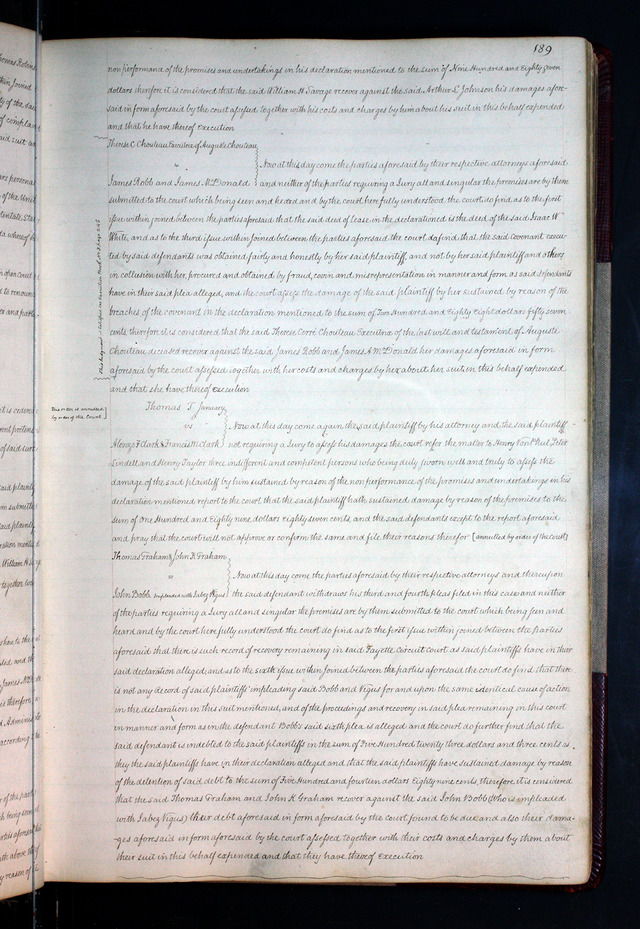 189
non performance of the promises and undertakings in his declaration mentioned to the sum of Nine Hundred and Eighty Seven
dollars therefore it is considered that the said William H. Savage recover against the said Arthur L. Johnson his damages afore-
said in form aforesaid by the court assessed together with his costs and charges by him about his suit in this behalf expended
and that he have thereof execution
Therese C. Chouteau Executrix of Auguste Chouteau
vs
Now at this day come the parties aforesaid by their respective attorneys aforesaid
James Robb and James McDonald and neither of the parties requiring a Jury all and singular the premises are by them
submitted to the court which being seen and heard and by the court here fully understood, the court do find as to the first
issue within joined between the parties aforesaid that the said deed of lease in the declaration is the deed of the said Isaac W
White, and as to the third issue within joined between the parties aforesaid the court do find that the said covenant execu-
ted by said defendants was obtained fairly and honestly by her said plaintiff, and not by her said plaintiff and others
in collusion with her, procured and obtained by fraud, covin and misrepresentation in manner and form as said defendants
have in their said plea alleged, and the court assess the damage of the said plaintiff by her sustained by reason of the
breaches of the covenant in the declaration mentioned to the sum of Two Hundred and Eighty Eight dollars fifty seven
cents therefore it is considered that the said Therese Cerré Chouteau Executrix of the last will and testament of Auguste
Chouteau deceased recover against the said James Robb and James A McDonald her damages aforesaid in form
aforesaid by the court assessed together with her costs and charges by her about her suit in this behalf expended
and that she have thereof execution
This order is annulled
by order of the Court
Thomas T January
vs
Now at this day come again the said plaintiff by his attorney and the said plaintiff
Alonzo F Clark & Francis N Clark not requiring a Jury to assess his damages the court refer the matter to Henry Von Phul, Peter
Lindell and Henry Taylor three indifferent and competent persons who being duly sworn well and truly to assess the
damage of the said plaintiff by him sustained by reason of the non performance of the promises and undertakings in his
declaration mentioned report to the court that the said plaintiff hath sustained damage by reason of the premises to the
sum of One Hundred and Eighty nine dollars eighty seven cents, and the said defendants except to the report aforesaid
and pray that the court will not approve or confirm the same and file their reasons therefor [annulled by order of the Court]
Thomas Graham & John K Graham
vs
Now at this day come the parties aforesaid by their respective attorneys and thereupon
John Bobb impleaded with Jabez Vigus the said defendant withdraws his third and fourth pleas filed in this case and neither
of the parties requiring a Jury all and singular the premises are by them submitted to the court which being seen and
heard and by the court here fully understood the court do find as to the first issue within joined between the parties
aforesaid that there is such record of recovery remaining in said Fayette Circuit court as said plaintiffs have in their
said declaration alleged, and as to the sixth issue within joined between the parties aforesaid the court do find that there
is not any record of said plaintiffs impleading said Bobb and Vigus for and upon the same identical cause of action
in the declaration in this suit mentioned, and of the proceedings and recovery in said plea remaining in this court
in manner and form as in the defendant Bobb's said sixth plea is alleged and the court do further find that the
said defendant is indebted to the said plaintiffs in the sum of Five Hundred twenty three dollars and three cents as
they the said plaintiffs have in their declaration alleged and that the said plaintiffs have sustained damage by reason
of the detention of said debt to the sum of Five Hundred and fourteen dollars Eighty nine cents, therefore it is considered
that the said Thomas Graham and John K Graham recover against the said John Bobb (Who is impleaded
with Jabez Vigus) their debt aforesaid in form aforesaid by the court found to be due and also their dama-
-ges aforesaid in form aforesaid by the court assessed together with their costs and charges by them about
their suit in this behalf expended and that they have thereof execution